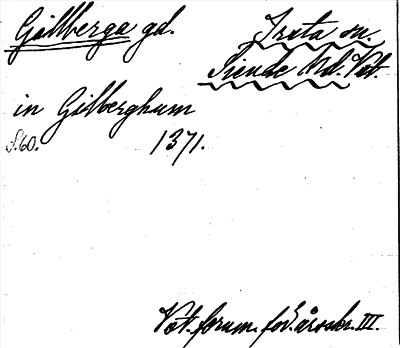 Gillberga gd. Irsta sn.
Siende hd. Vstm.
in Gilberghum
S.60. 1371.
Vstm. fornm. för. årsskr. III.